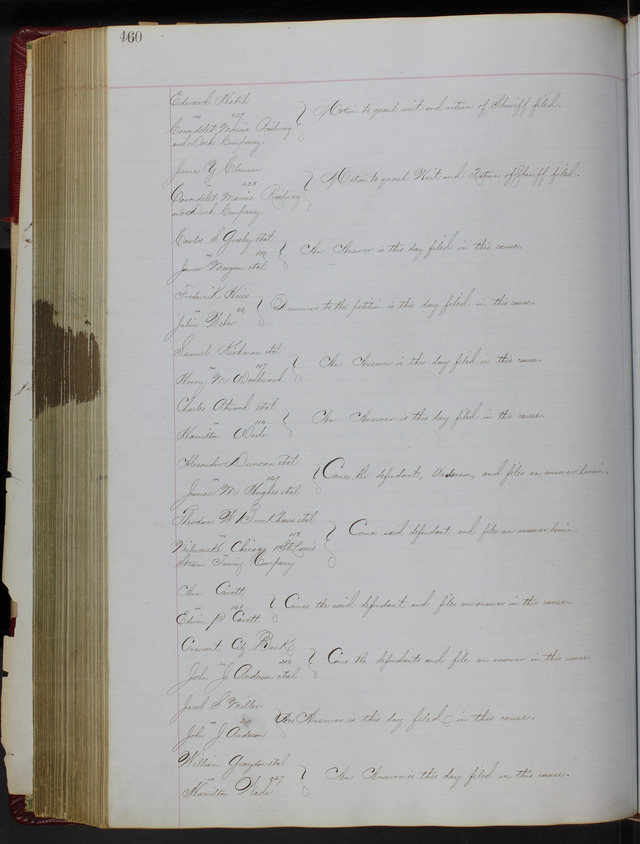 460
Edward Hatch
vs 157 } Motion to quash writ and return of Sheriff filed.
Carondelet Marine Railway
and Dock Company.
James Y Clemens
vs 158 } Motion to quash Writ and Return of Sheriff filed.
Carondelet Marine Railway
and Dock Company
Carlos S Greely et al
vs } An Answer is this day filed in this cause.
James Magan et al
Frederick
vs } Demurrer to the petition is this day filed in this cause.
Julius Weber
Samuel Kirkman et al
vs 107 } An Answer is this day filed in this cause.
Henry M Woodward
Charles Atwood et al
vs } An Answer is this day filed in this cause
Hamilton Wade
Alexander Duncan et al
vs } Comes the defendant, Anderson, and files an answer herein.
James M Hughes et al
Theodore W et al
vs } Comes said defendant and files an answer herein.
Milwaukee Chicago & St Louis
Steam Towing Company
Ann Cavett
vs } Comes the said defendant and files an answer in this cause.
Edwin P Cavett
Crescent City Bank
vs } Come the defendants and file an answer in this cause
John J Anderson et al
Jacob S Miller
vs } An Answer is this day filed in this cause.
John J Anderson
William Graydon et al
vs 227 } An Answer is this day filed in this cause.
Hamilton Wade